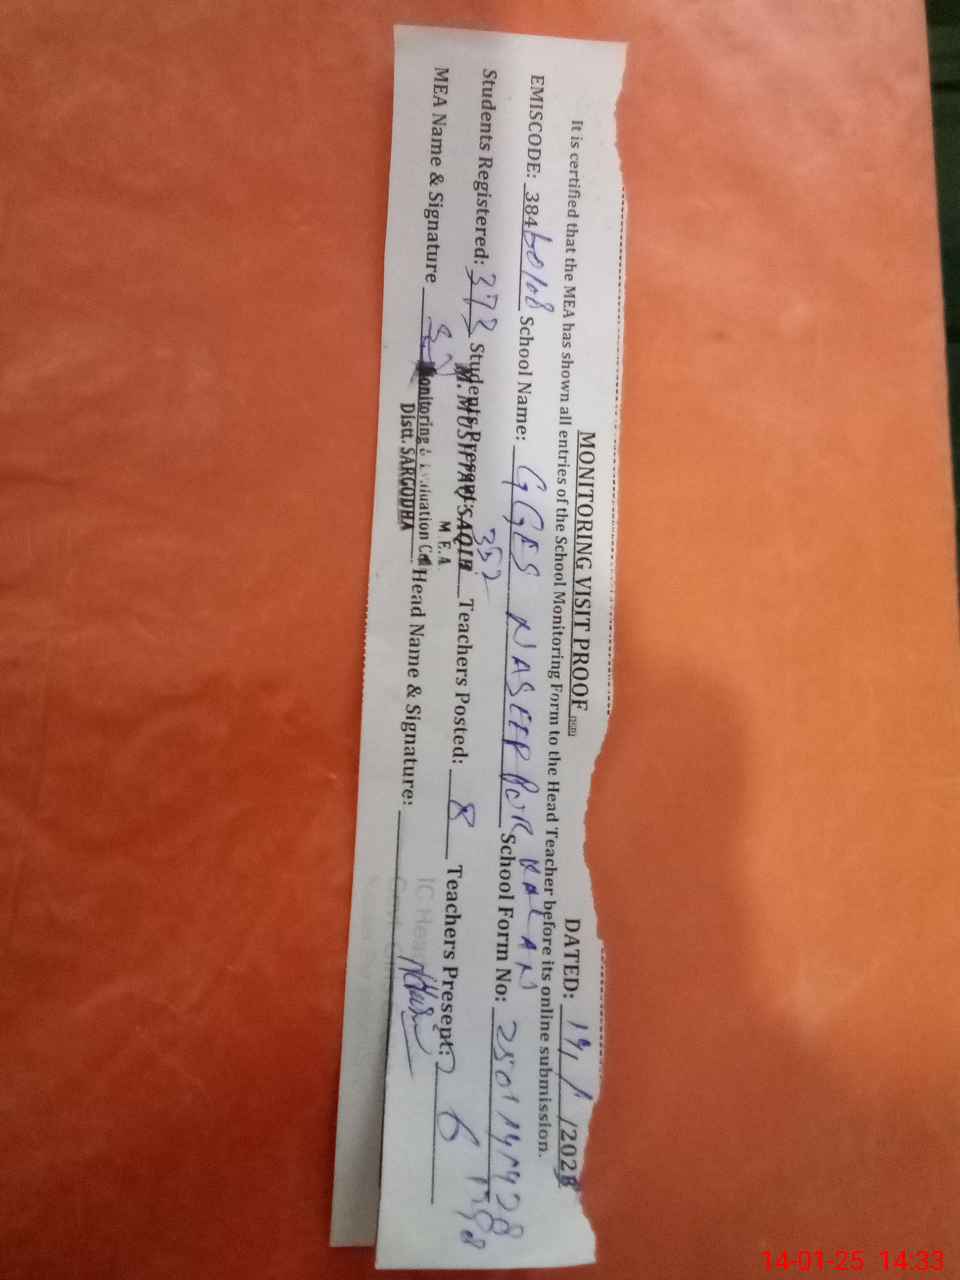 MONITORING VISIT PROOF
DATED: 14/1/2025
It is certified that the MEA has shown all entries of the School Monitoring Form to the Head Teacher before its online submission.
EMISCODE: 384 School Name: GGES NASEER PUR KALAN School Form No:
Students Registered: 372 Students Present: 352 Teachers Posted: 8 Teachers Present: 6
M. MUSHTAQ SAQIB
M E A
MEA Name & Signature Head Name & Signature:
Monitoring & Evaluation Cell
Distt. SARGODHA
14-01-25 14:33